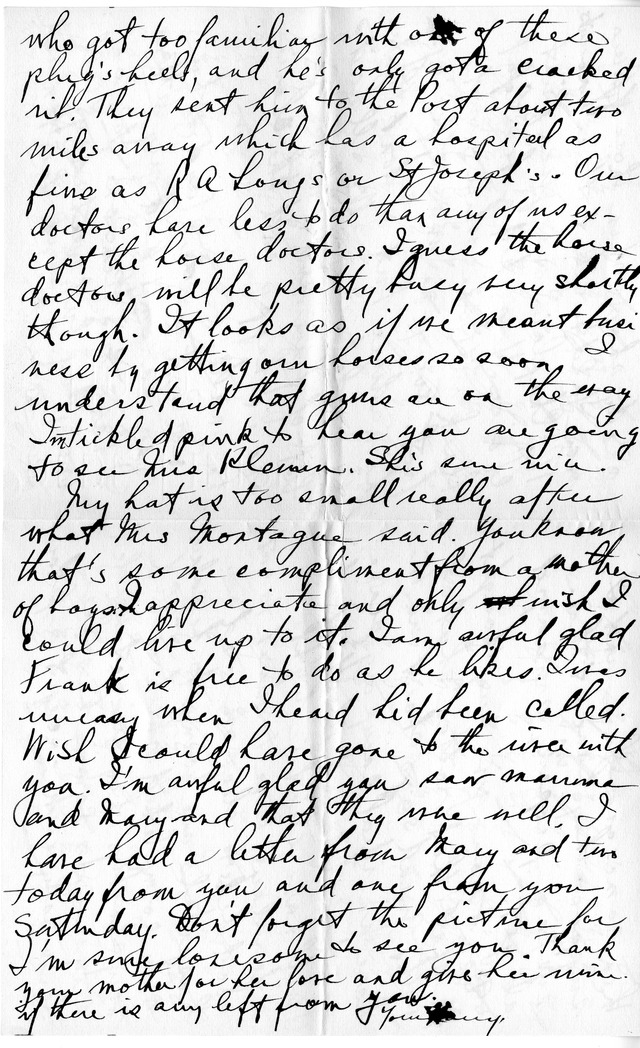 who got too familiar with one of these
plug's heels, and he's only got a cracked
rib. They sent him to the Post about two
miles away which has a hospital as
fine as R A Longs or St Joseph's. Our
doctors have less to do than any of us ex-
cept the horse doctors. I guess the horse
doctors will be pretty busy very shortly
though. It looks as if we meant busi
ness by getting our horses so soon I
understand that guns are on the way
I'm tickled pink to hear you are going
to see Mrs Klemm. She's sure nice.
My hat is too small really after
what Mrs Montague said. You know
that's some compliment from a mother
of boys. I appreciate and only wish I
could live up to it. I am awful glad
Frank is free to do as he likes. I was
uneasy when I heard he'd been called.
Wish I could have gone to the river with
you. I'm awful glad you saw mamma
and Mary and that they were well. I
have had a letter from Mary and two
today from you and one from you
Saturday. Don't forget the picture for
I'm sure lonesome to see you. Thank
your mother for her love and give her mine.
if there is any left from you.
Your Harry.